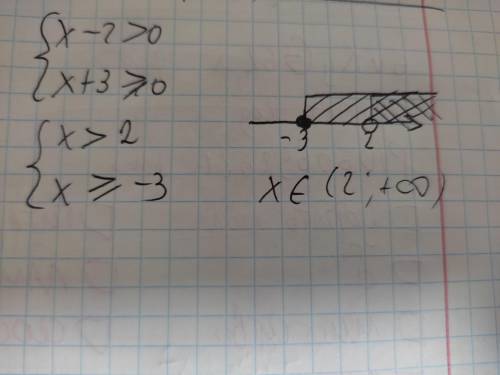 {x-2>0
{x+3⩾0
{x>2
{x⩾-3
-3 2
x∈(2;+∞)